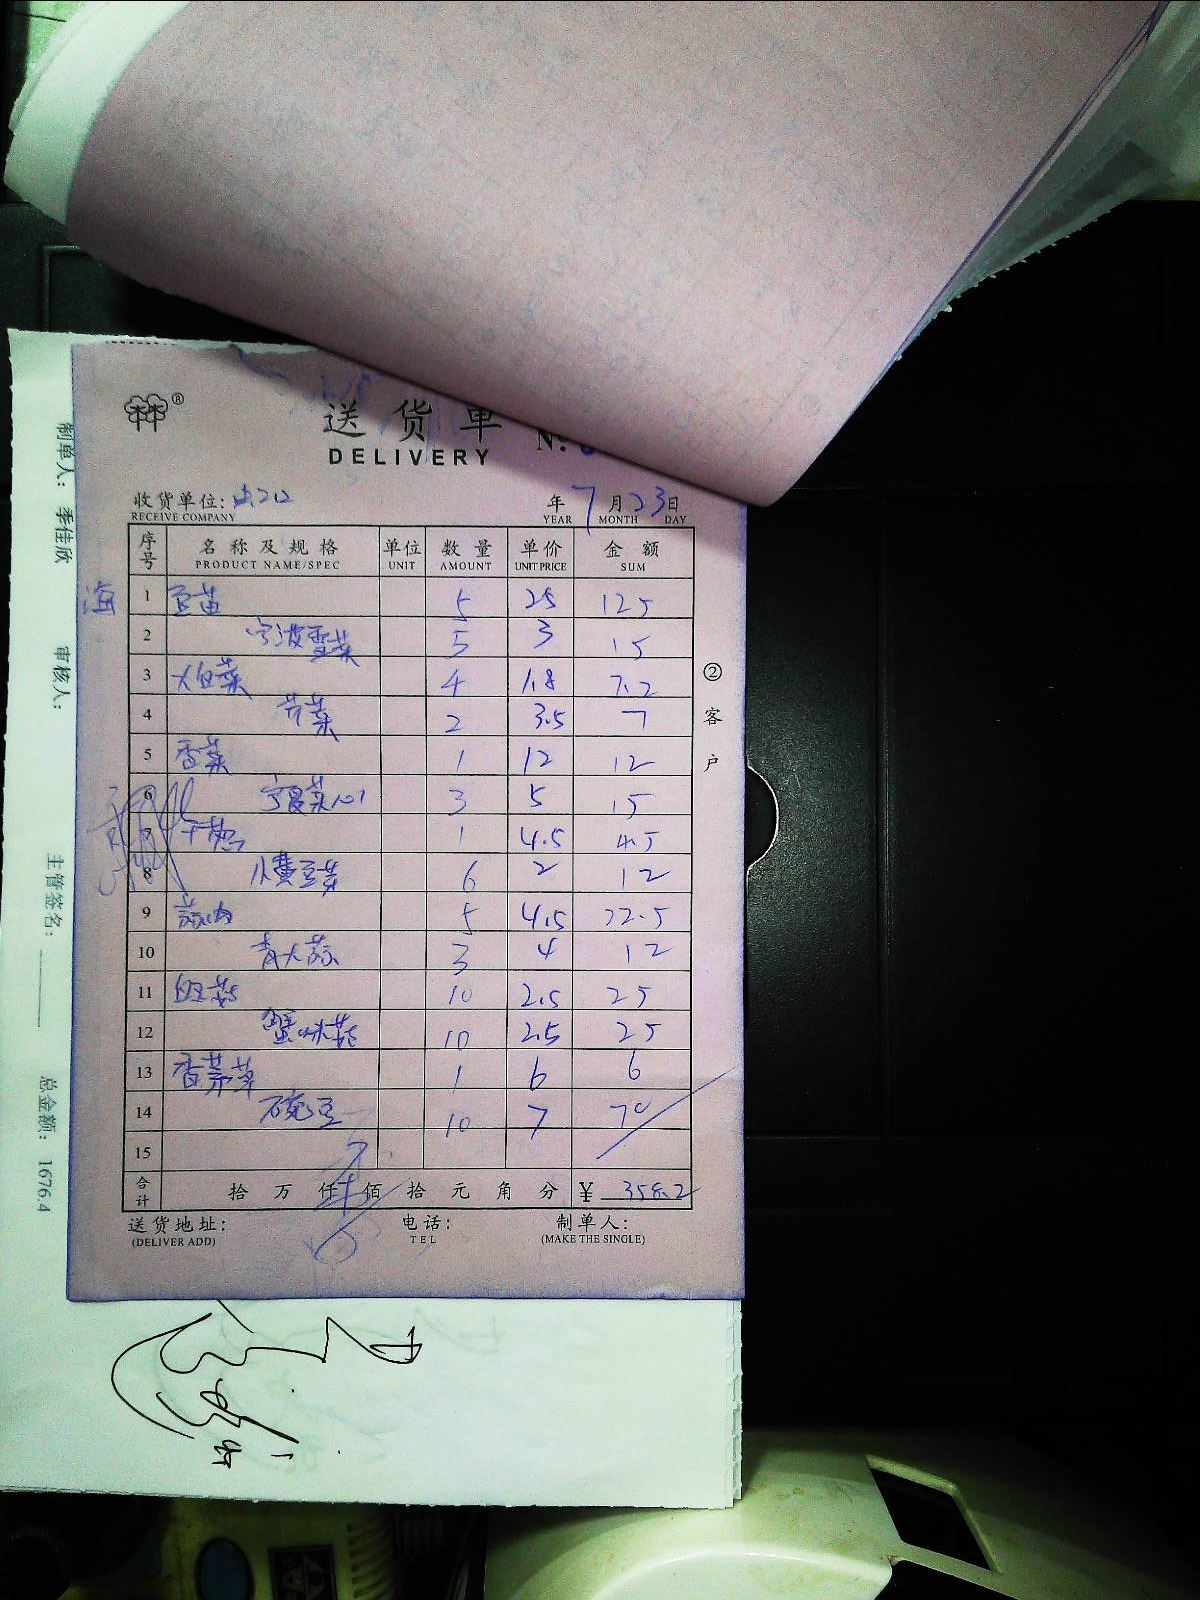 ®
送货单
DELIVERY
№:
收货单位:
RECEIVE COMPANY
年 7 月 23 日
YEAR MONTH DAY
序号 名称及规格 单位 数量 单价 金额
PRODUCT NAME/SPEC UNIT AMOUNT UNIT PRICE SUM
海 1 豆苗 5 25 125
2 宁波雪菜 5 3 15
3 大白菜 4 1.8 7.2
4 芹菜 2 3.5 7
5 香菜 1 12 12
6 宁夏菜心 3 5 15
7 干葱 1 4.5 4.5
8 小黄豆芽 6 2 12
9 蒜肉 5 4.5 22.5
10 青大蒜 3 4 12
11 白玉菇 10 2.5 25
12 蟹味菇 10 2.5 25
13 香茅草 1 6 6
14 豌豆 10 7 70
15
合计 拾 万 仟 佰 拾 元 角 分 ¥ 358.2
送货地址: 电话: 制单人:
(DELIVER ADD) TEL (MAKE THE SINGLE)
②客户
制单人: 季佳欣 审核人:
主管签名: 总金额: 1676.4